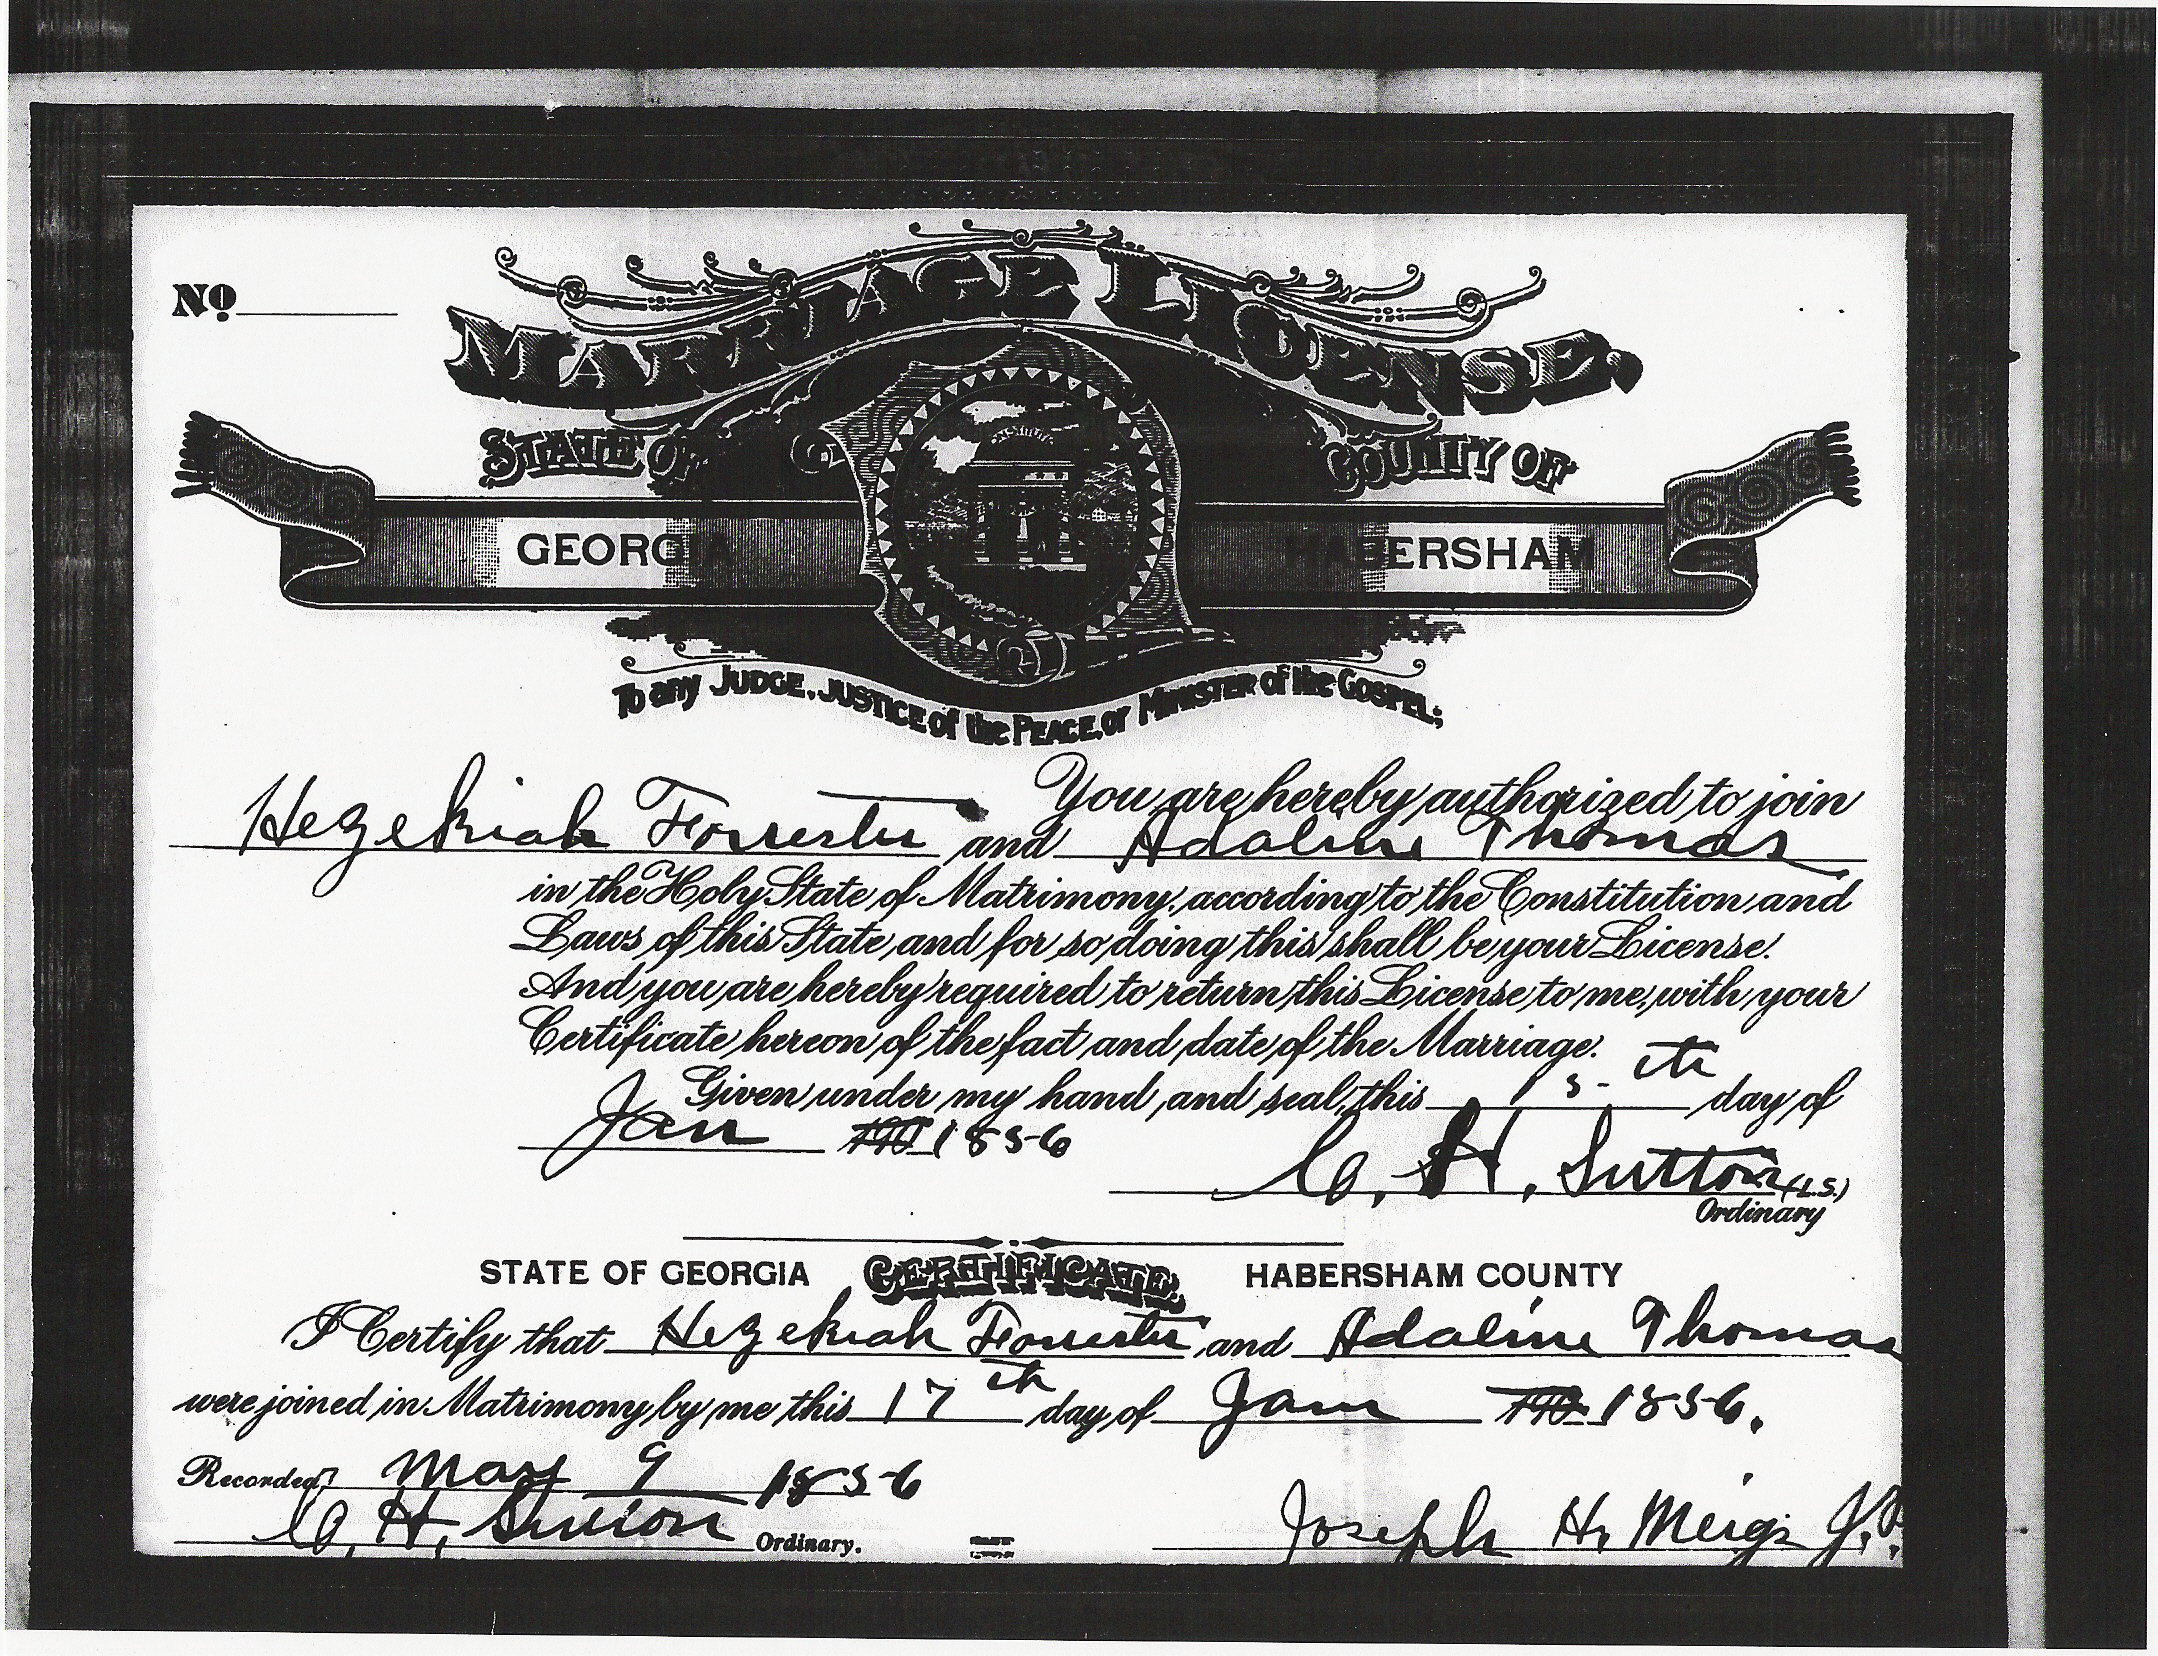 No
MARRIAGE LICENSE,
STATE OF COUNTY OF
GEORGIA HABERSHAM
To any JUDGE, JUSTICE of the PEACE, or MINISTER of the GOSPEL;
You are hereby authorized to join
Hezekiah Forrester and Adaline Thomas
in the Holy State of Matrimony, according to the Constitution and
Laws of this State and for so doing this shall be your License.
And you are hereby required to return this License to me, with your
Certificate hereon of the fact and date of the Marriage.
Given under my hand and seal, this 15-th day of
Jan 190 1856
C. H. Sutton (L.S.)
Ordinary
STATE OF GEORGIA CERTIFICATE. HABERSHAM COUNTY
I Certify that Hezekiah Forrester and Adaline Thomas
were joined in Matrimony by me this 17th day of Jan 190 1856.
Recorded, May 9 1856
C. H. Sutton Ordinary. Joseph H. Meigs J.P.